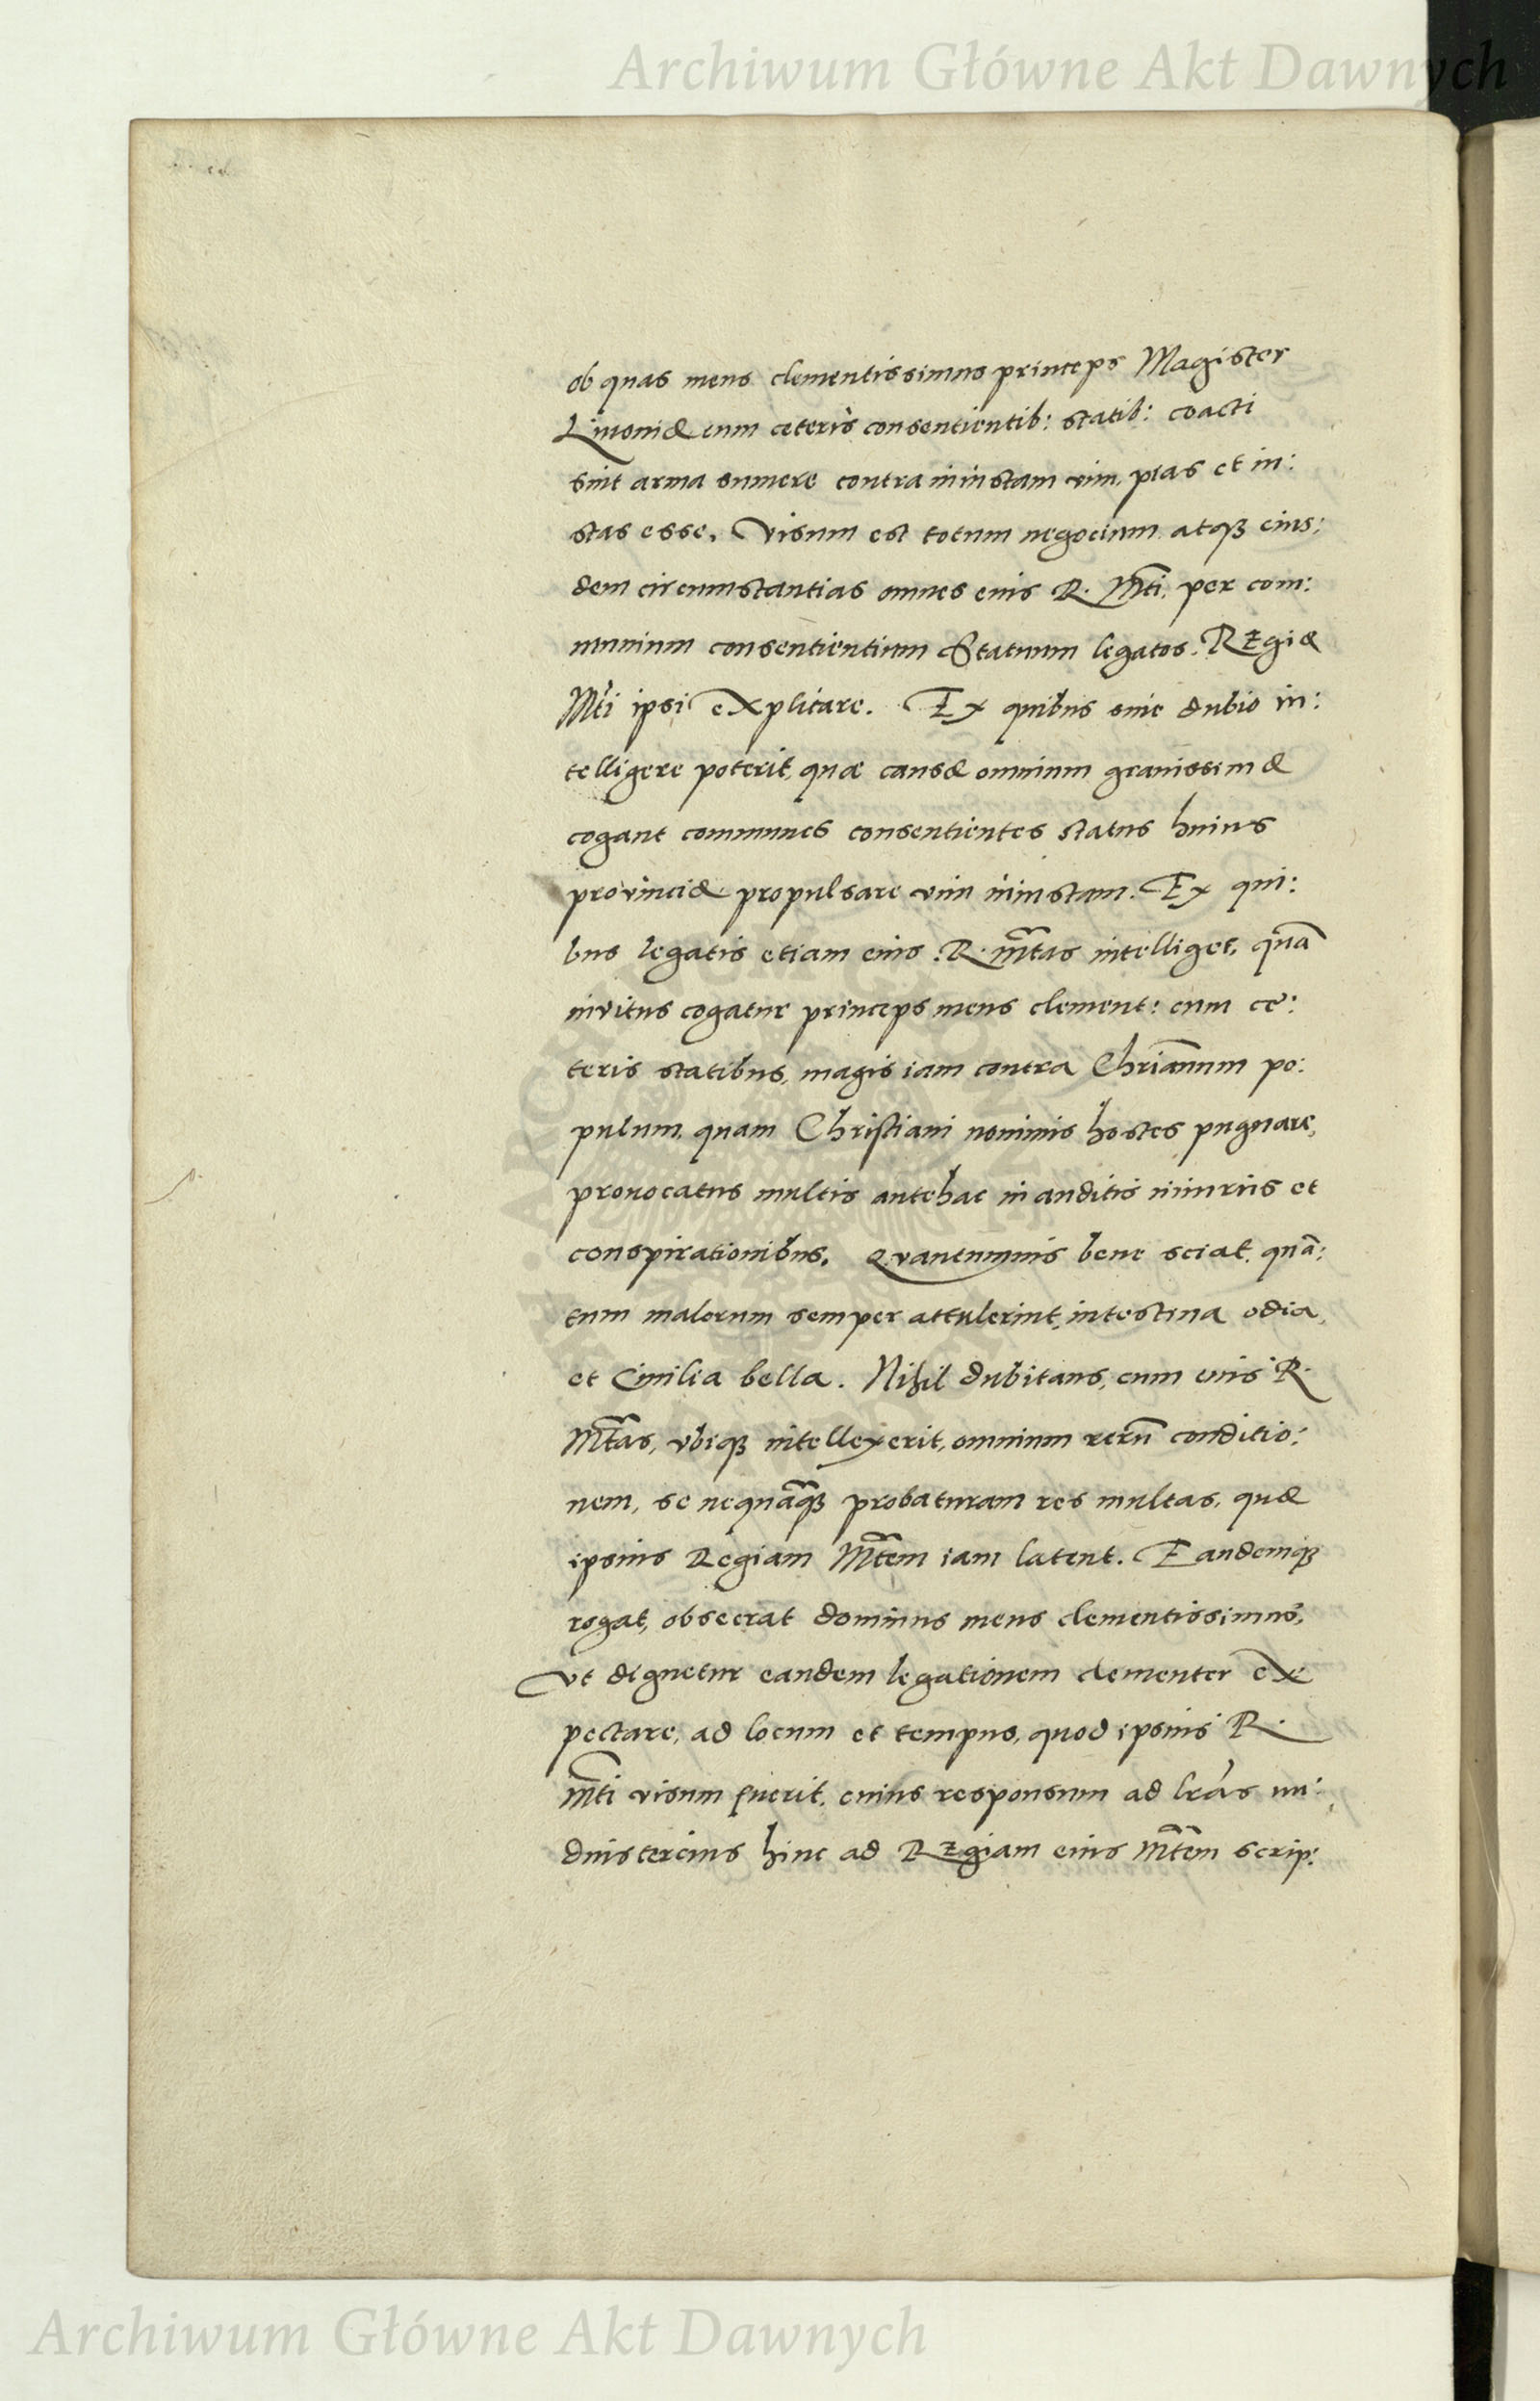 Archiwum Główne Akt Dawnych
ob quas meus clementissimus princeps Magister
Liuoniæ cum ceteris consentientib: statib: coacti
sint arma sumere contra iniustam vim, pias et iu:
stas esse. Visum est totum negocium atq₃ eius:
dem circumstantias omnes eius R. Mti. per com:
munium consentientium Statuum legatos. REgiæ
Mti ipsi eXplicare. Ex quibus sine dubio in:
telligere poterit, quæ causæ omnium grauissimæ
cogant communes consentientes status huius
provinciæ propulsare vim iniustam. Ex qui:
bus legatis etiam eius R. Mtas intelliget, quā
invitus cogatur princeps meus clement: cum ce:
teris statibus, magis iam contra Chrianum po:
pulum, quam Christiani nominis hostes pugnare,
prouocatus multis antehac inauditis iniuriis et
conspirationibus. Quantumuis bene sciat, quā:
tum malorum semper attulerint, intestina odia,
et Ciuilia bella. Nihil dubitans, cum eius R.
Mtas, vbiq₃ intellexerit, omnium rerū conditio:
nem, se nequāq₃ probaturam res multas, quæ
ipsius Regiam Mtem iam latent. Eandemq₃
rogat, obsecrat dominus meus clementissimus,
Vt dignetur eandem legationem clementer eX:
pectare, ad locum et tempus, quod ipsius R.
Mti visum fuerit, cuius responsum ad lras nu:
diustercius hinc ad REgiam eius Mtem scrip:
Archiwum Główne Akt Dawnych